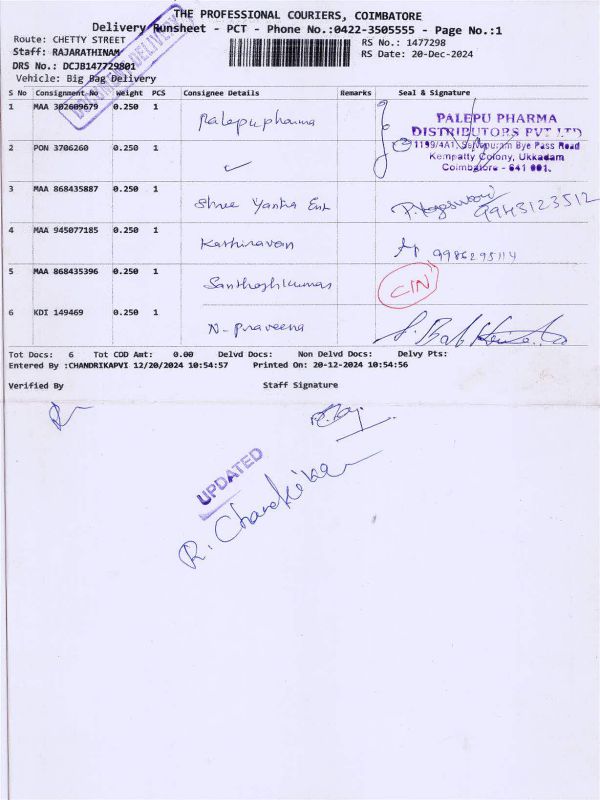 THE PROFESSIONAL COURIERS, COIMBATORE
Delivery Runsheet - PCT - Phone No.:0422-3505555 - Page No.:1
Route: CHETTY STREET
RS No.: 1477298
Staff: RAJARATHINAM
RS Date: 20-Dec-2024
DRS No.: DCJB147729801
Vehicle: Big Bag Delivery
DOCUMENT DELIVERY
S No Consignment No Weight PCS Consignee Details Remarks Seal & Signature
1 MAA 302609679 0.250 1 Palepu pharma
PALEPU PHARMA
DISTRIBUTORS PVT LTD
2 PON 3706260 0.250 1 ✓
Bye Pass Road
Kempatty Colony, Ukkadam
Coimbatore - 641 001.
3 MAA 868435887 0.250 1 Shree Yantra Ent 9943123512
4 MAA 945077185 0.250 1 Kathiravan
5 MAA 868435396 0.250 1 Santhoshkumar CIN
6 KDI 149469 0.250 1 N. Praveena
Tot Docs: 6 Tot COD Amt: 0.00 Delvd Docs: Non Delvd Docs: Delvy Pts:
Entered By :CHANDRIKAPVI 12/20/2024 10:54:57 Printed On: 20-12-2024 10:54:56
Verified By Staff Signature
UPDATED
R. Chandrika